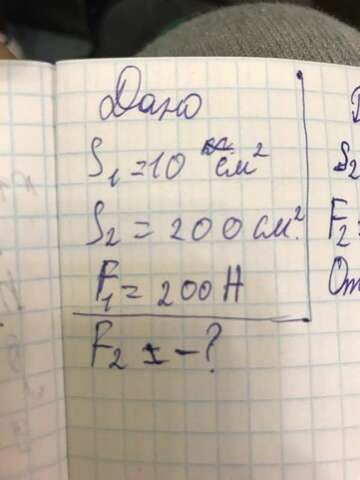 Дано
S₁=10 см²
S₂ = 200 см².
F₁ = 200 Н
F₂ = -?
S₂
F₂ =
От